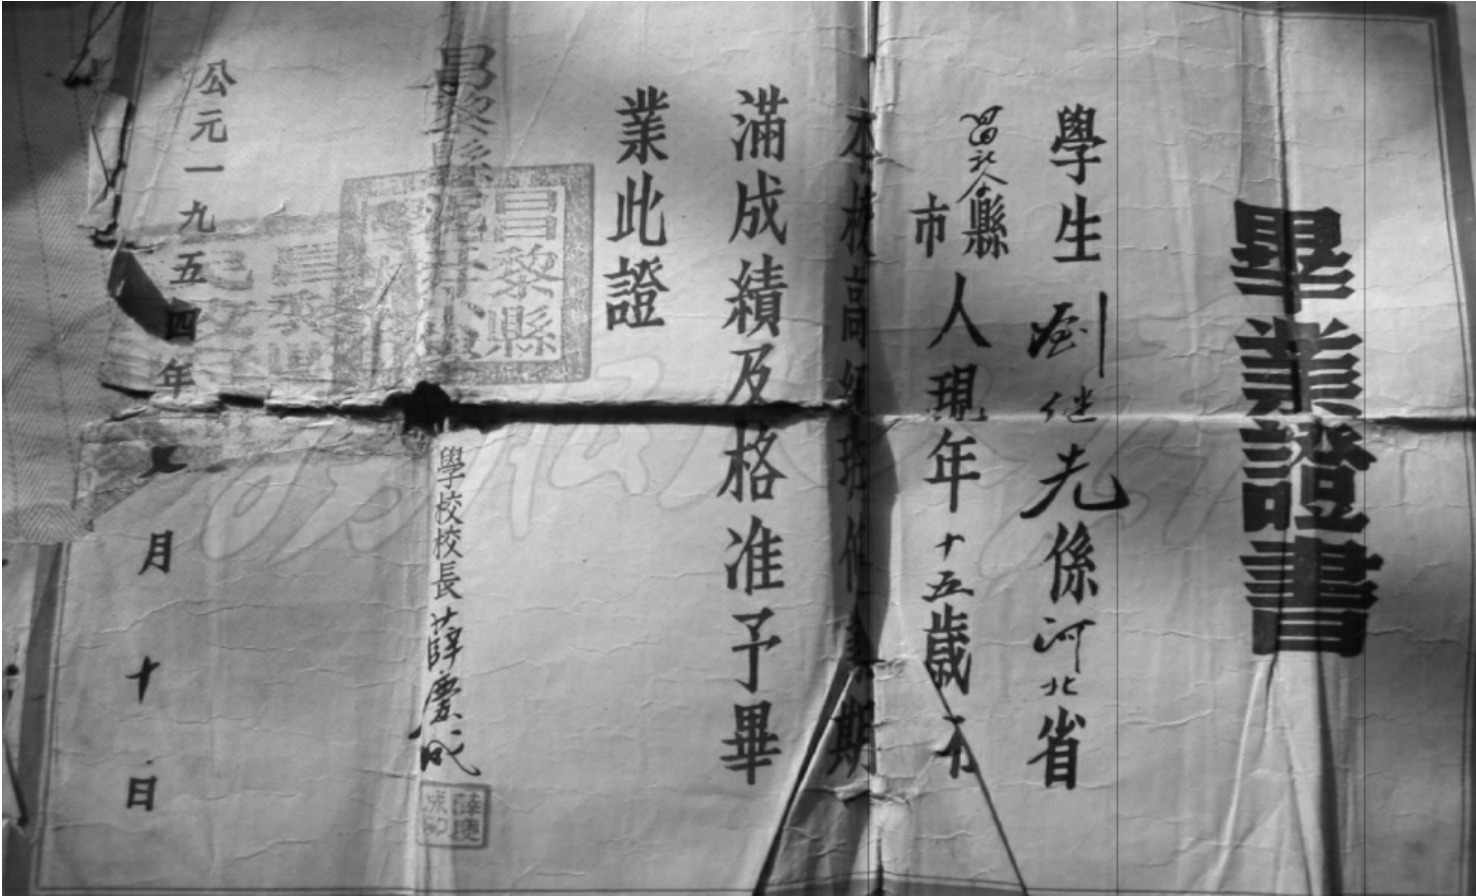 畢業證書
學生劉继光係河北省
昌黎縣
市
人現年十五歲在
本校高級班修業期
滿成績及格准予畢
業此證
昌黎縣
昌黎縣
學校校長薛慶成
薛慶
成印
公元一九五四年
月十日